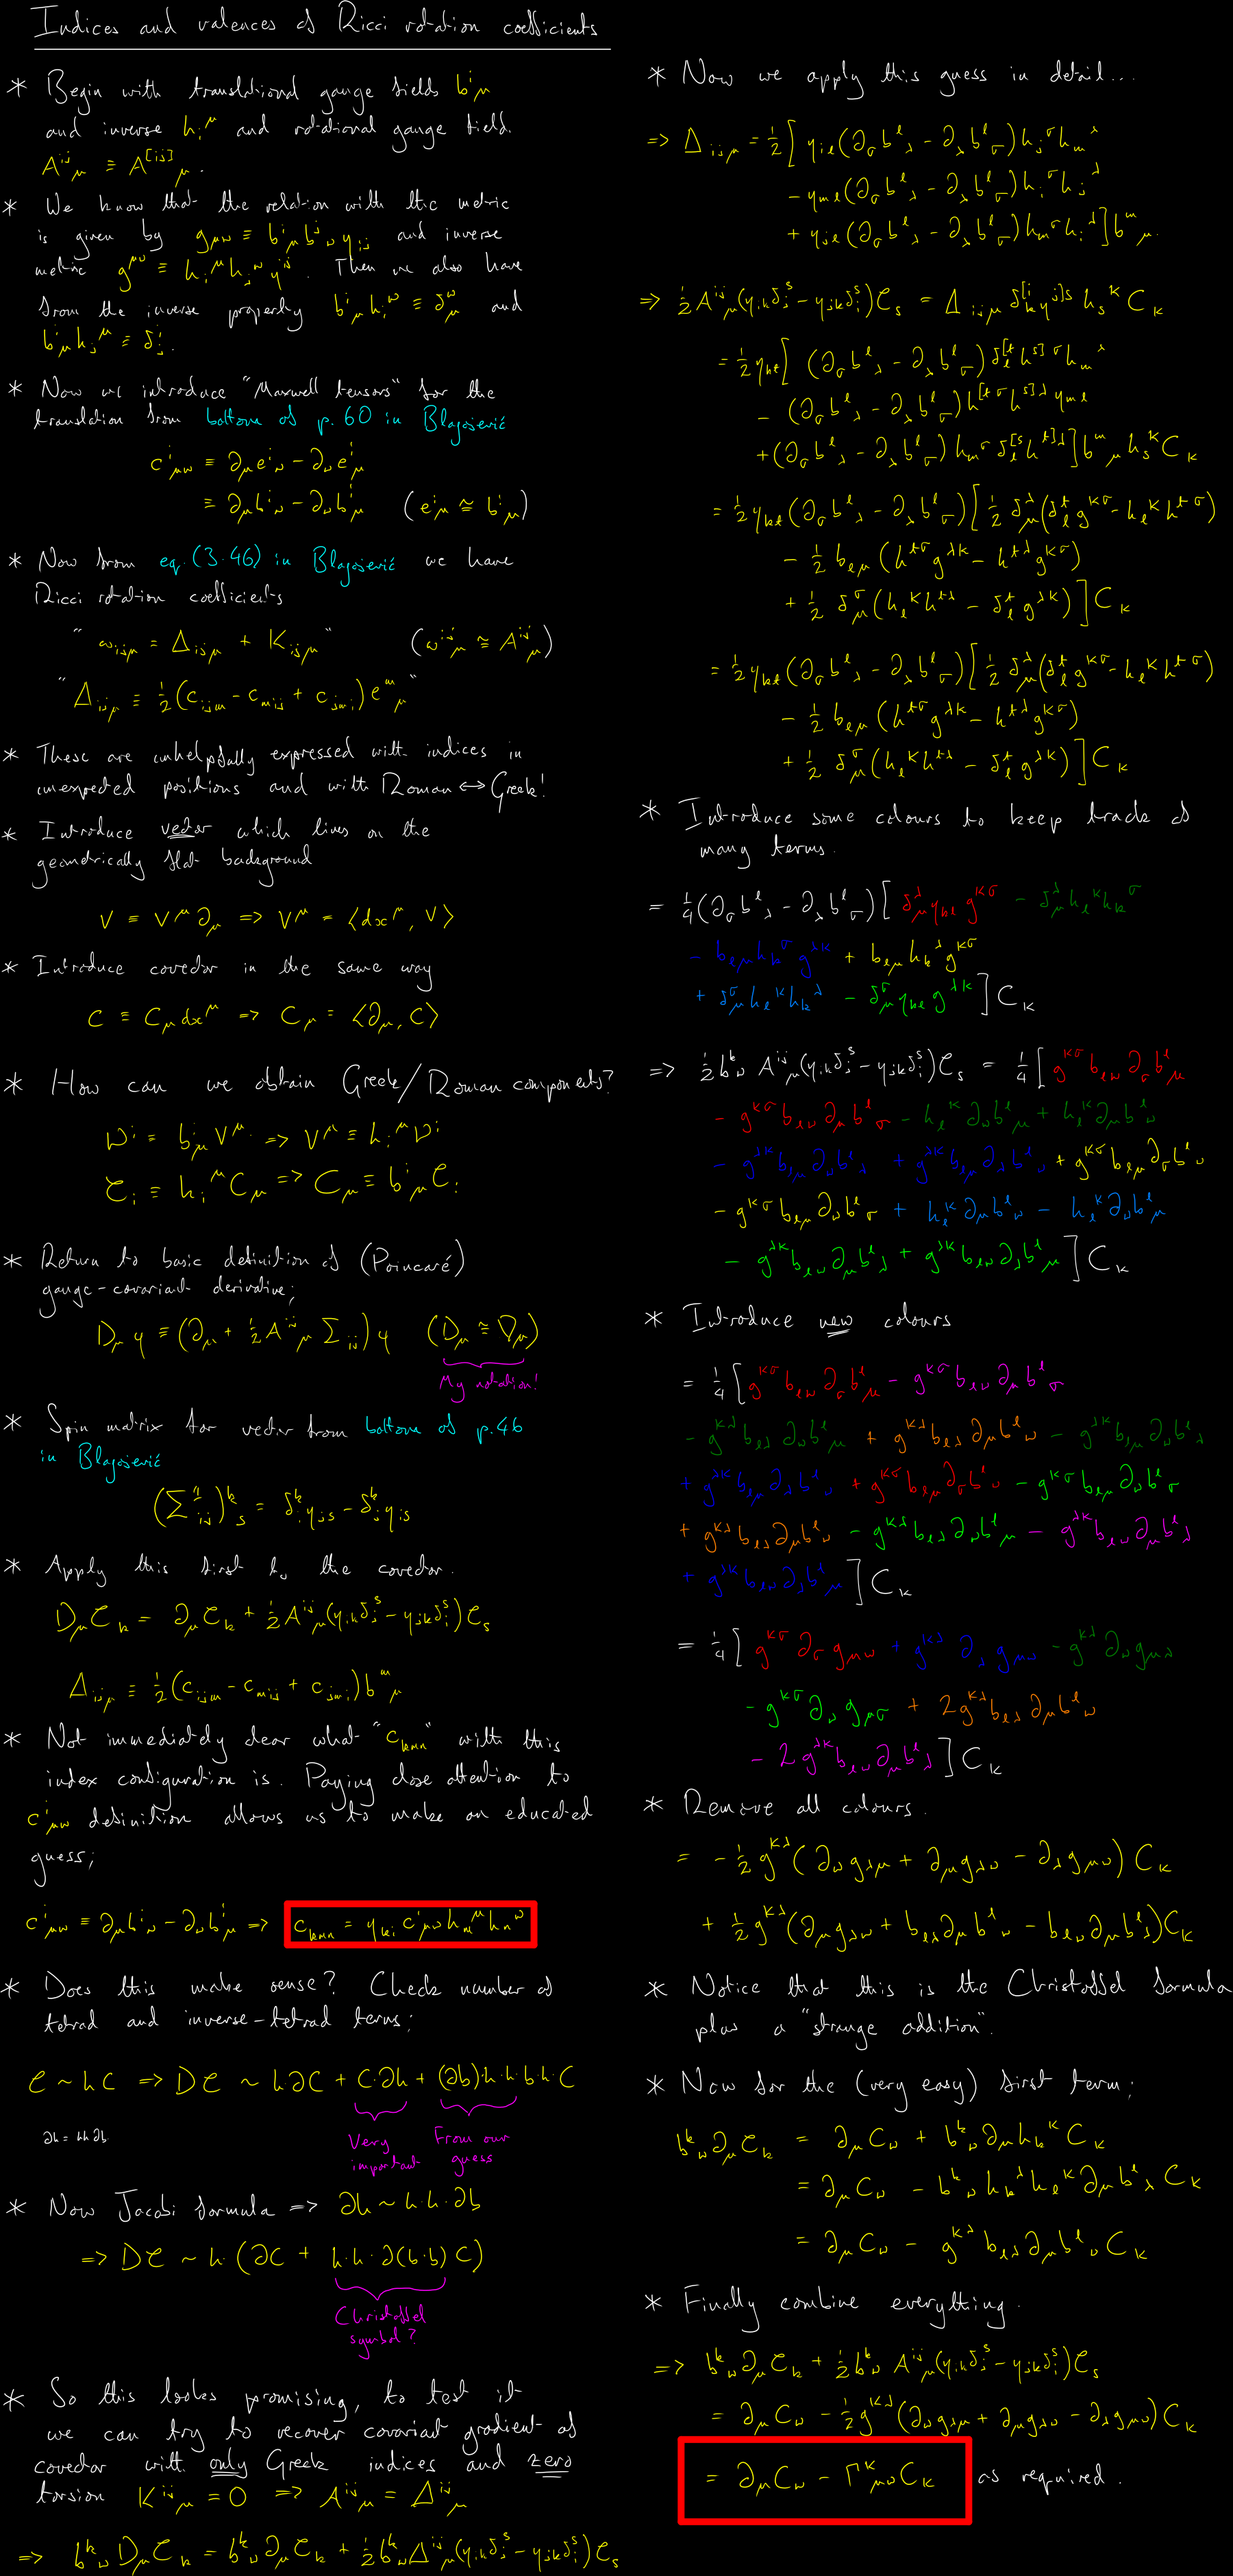 Indices and valences of Ricci rotation coefficients
* Begin with translational gauge fields b^i_μ
and inverse h_i^μ and rotational gauge field.
A^{ij}_μ ≡ A^{[ij]}_μ.
* We know that the relation with the metric
is given by g_{μν} ≡ b^i_μ b^j_ν η_{ij} and inverse
metric g^{μν} ≡ h_i^μ h_j^ν η^{ij}. Then we also have
from the inverse property b^i_μ h_i^ν ≡ δ^ν_μ and
b^i_μ h_j^μ ≡ δ^i_j.
* Now we introduce "Maxwell tensors" for the
translation from bottom of p. 60 in Blagojević
c^i_{μν} ≡ ∂_μ e^i_ν - ∂_ν e^i_μ
≡ ∂_μ b^i_ν - ∂_ν b^i_μ (e^i_μ ≅ b^i_μ)
* Now from eq. (3.46) in Blagojević we have
Ricci rotation coefficients
"ω_{ijμ} = Δ_{ijμ} + K_{ijμ}" (ω^{ij}_μ ≅ A^{ij}_μ)
"Δ_{ijμ} ≡ ½(c_{ijm} - c_{mij} + c_{jmi}) e^m_μ"
* These are unhelpfully expressed with indices in
unexpected positions and with Roman ↔ Greek!
* Introduce vector which lives on the
geometrically flat background
V ≡ V^μ ∂_μ => V^μ = ⟨dx^μ, V⟩
* Introduce covector in the same way
C ≡ C_μ dx^μ => C_μ = ⟨∂_μ, C⟩
* How can we obtain Greek/Roman components?
𝒱^i ≡ b^i_μ V^μ => V^μ ≡ h_i^μ 𝒱^i
𝒞_i ≡ h_i^μ C_μ => C_μ ≡ b^i_μ 𝒞_i
* Return to basic definition of (Poincaré)
gauge-covariant derivative;
D_μ φ ≡ (∂_μ + ½ A^{ij}_μ Σ_{ij}) φ (D_μ ≅ ∇_μ)
My notation!
* Spin matrix for vector from bottom of p. 46
in Blagojević
(Σ^1_{ij})^k_s = δ^k_i η_{js} - δ^k_j η_{is}
* Apply this first to the covector.
D_μ 𝒞_k = ∂_μ 𝒞_k + ½ A^{ij}_μ (η_{ik} δ^s_j - η_{jk} δ^s_i) 𝒞_s
Δ_{ijμ} ≡ ½(c_{ijm} - c_{mij} + c_{jmi}) b^m_μ
* Not immediately clear what "c_{kmn}" with this
index configuration is. Paying close attention to
c^i_{μν} definition allows us to make an educated
guess;
c^i_{μν} ≡ ∂_μ b^i_ν - ∂_ν b^i_μ => c_{kmn} = η_{ki} c^i_{μν} h_m^μ h_n^ν
* Does this make sense? Check number of
tetrad and inverse-tetrad terms;
𝒞 ~ hC => D𝒞 ~ h·∂C + C·∂h + (∂b)·h·h·b·h·C
∂h = hh∂b
Very important
From our guess
* Now Jacobi formula => ∂h ~ h·h·∂b
=> D𝒞 ~ h·(∂C + h·h·∂(b·b) C)
Christoffel symbol?
* So this looks promising, to test it
we can try to recover covariant gradient of
covector with only Greek indices and zero
torsion K^{ij}_μ = 0 => A^{ij}_μ = Δ^{ij}_μ
=> b^k_ν D_μ 𝒞_k = b^k_ν ∂_μ 𝒞_k + ½ b^k_ν Δ^{ij}_μ (η_{ik} δ^s_j - η_{jk} δ^s_i) 𝒞_s
* Now we apply this guess in detail...
=> Δ_{ijμ} = ½[η_{il}(∂_σ b^l_λ - ∂_λ b^l_σ) h_j^σ h_m^λ
- η_{ml}(∂_σ b^l_λ - ∂_λ b^l_σ) h_i^σ h_j^λ
+ η_{jl}(∂_σ b^l_λ - ∂_λ b^l_σ) h_m^σ h_i^λ] b^m_μ.
=> ½ A^{ij}_μ (η_{ik} δ^s_j - η_{jk} δ^s_i) 𝒞_s = Δ_{ijμ} δ^{[i}_k η^{j]s} h_s^κ C_κ
= ½ η_{kt}[(∂_σ b^l_λ - ∂_λ b^l_σ) δ^{[t}_l h^{s]σ} h_m^λ
- (∂_σ b^l_λ - ∂_λ b^l_σ) h^{[tσ} h^{s]λ} η_{ml}
+ (∂_σ b^l_λ - ∂_λ b^l_σ) h_m^σ δ^{[s}_l h^{t]λ}] b^m_μ h_s^κ C_κ
= ½ η_{kt}(∂_σ b^l_λ - ∂_λ b^l_σ)[½ δ^λ_μ (δ^t_l g^{κσ} - h_l^κ h^{tσ})
- ½ b_{lμ}(h^{tσ} g^{λκ} - h^{tλ} g^{κσ})
+ ½ δ^σ_μ (h_l^κ h^{tλ} - δ^t_l g^{λκ})] C_κ
= ½ η_{kt}(∂_σ b^l_λ - ∂_λ b^l_σ)[½ δ^λ_μ (δ^t_l g^{κσ} - h_l^κ h^{tσ})
- ½ b_{lμ}(h^{tσ} g^{λκ} - h^{tλ} g^{κσ})
+ ½ δ^σ_μ (h_l^κ h^{tλ} - δ^t_l g^{λκ})] C_κ
* Introduce some colours to keep track of
many terms.
= ¼(∂_σ b^l_λ - ∂_λ b^l_σ)[δ^λ_μ η_{kl} g^{κσ} - δ^λ_μ h_l^κ h_k^σ
- b_{lμ} h_k^σ g^{λκ} + b_{lμ} h_k^λ g^{κσ}
+ δ^σ_μ h_l^κ h_k^λ - δ^σ_μ η_{kl} g^{λκ}] C_κ
=> ½ b^k_ν A^{ij}_μ (η_{ik} δ^s_j - η_{jk} δ^s_i) 𝒞_s = ¼[g^{κσ} b_{lν} ∂_σ b^l_μ
- g^{κσ} b_{lν} ∂_μ b^l_σ - h_l^κ ∂_ν b^l_μ + h_l^κ ∂_μ b^l_ν
- g^{λκ} b_{lμ} ∂_ν b^l_λ + g^{λκ} b_{lμ} ∂_λ b^l_ν + g^{κσ} b_{lμ} ∂_σ b^l_ν
- g^{κσ} b_{lμ} ∂_ν b^l_σ + h_l^κ ∂_μ b^l_ν - h_l^κ ∂_ν b^l_μ
- g^{λκ} b_{lν} ∂_μ b^l_λ + g^{λκ} b_{lν} ∂_λ b^l_μ] C_κ
* Introduce new colours
= ¼[g^{κσ} b_{lν} ∂_σ b^l_μ - g^{κσ} b_{lν} ∂_μ b^l_σ
- g^{κλ} b_{lλ} ∂_ν b^l_μ + g^{κλ} b_{lλ} ∂_μ b^l_ν - g^{λκ} b_{lμ} ∂_ν b^l_λ
+ g^{λκ} b_{lμ} ∂_λ b^l_ν + g^{κσ} b_{lμ} ∂_σ b^l_ν - g^{κσ} b_{lμ} ∂_ν b^l_σ
+ g^{κλ} b_{lλ} ∂_μ b^l_ν - g^{κλ} b_{lλ} ∂_ν b^l_μ - g^{λκ} b_{lν} ∂_μ b^l_λ
+ g^{λκ} b_{lν} ∂_λ b^l_μ] C_κ
= ¼[g^{κσ} ∂_σ g_{μν} + g^{κλ} ∂_λ g_{μν} - g^{κλ} ∂_ν g_{μλ}
- g^{κσ} ∂_ν g_{μσ} + 2g^{κλ} b_{lλ} ∂_μ b^l_ν
- 2g^{λκ} b_{lν} ∂_μ b^l_λ] C_κ
* Remove all colours.
= -½ g^{κλ}(∂_ν g_{λμ} + ∂_μ g_{λν} - ∂_λ g_{μν}) C_κ
+ ½ g^{κλ}(∂_μ g_{λν} + b_{lλ} ∂_μ b^l_ν - b_{lν} ∂_μ b^l_λ) C_κ
* Notice that this is the Christoffel formula
plus a "strange addition".
* Now for the (very easy) first term;
b^k_ν ∂_μ 𝒞_k = ∂_μ C_ν + b^k_ν ∂_μ h_k^κ C_κ
= ∂_μ C_ν - b^k_ν h_k^λ h_l^κ ∂_μ b^l_λ C_κ
= ∂_μ C_ν - g^{κλ} b_{lλ} ∂_μ b^l_ν C_κ
* Finally combine everything.
=> b^k_ν ∂_μ 𝒞_k + ½ b^k_ν A^{ij}_μ (η_{ik} δ^s_j - η_{jk} δ^s_i) 𝒞_s
= ∂_μ C_ν - ½ g^{κλ}(∂_ν g_{λμ} + ∂_μ g_{λν} - ∂_λ g_{μν}) C_κ
= ∂_μ C_ν - Γ^κ_{μν} C_κ as required.